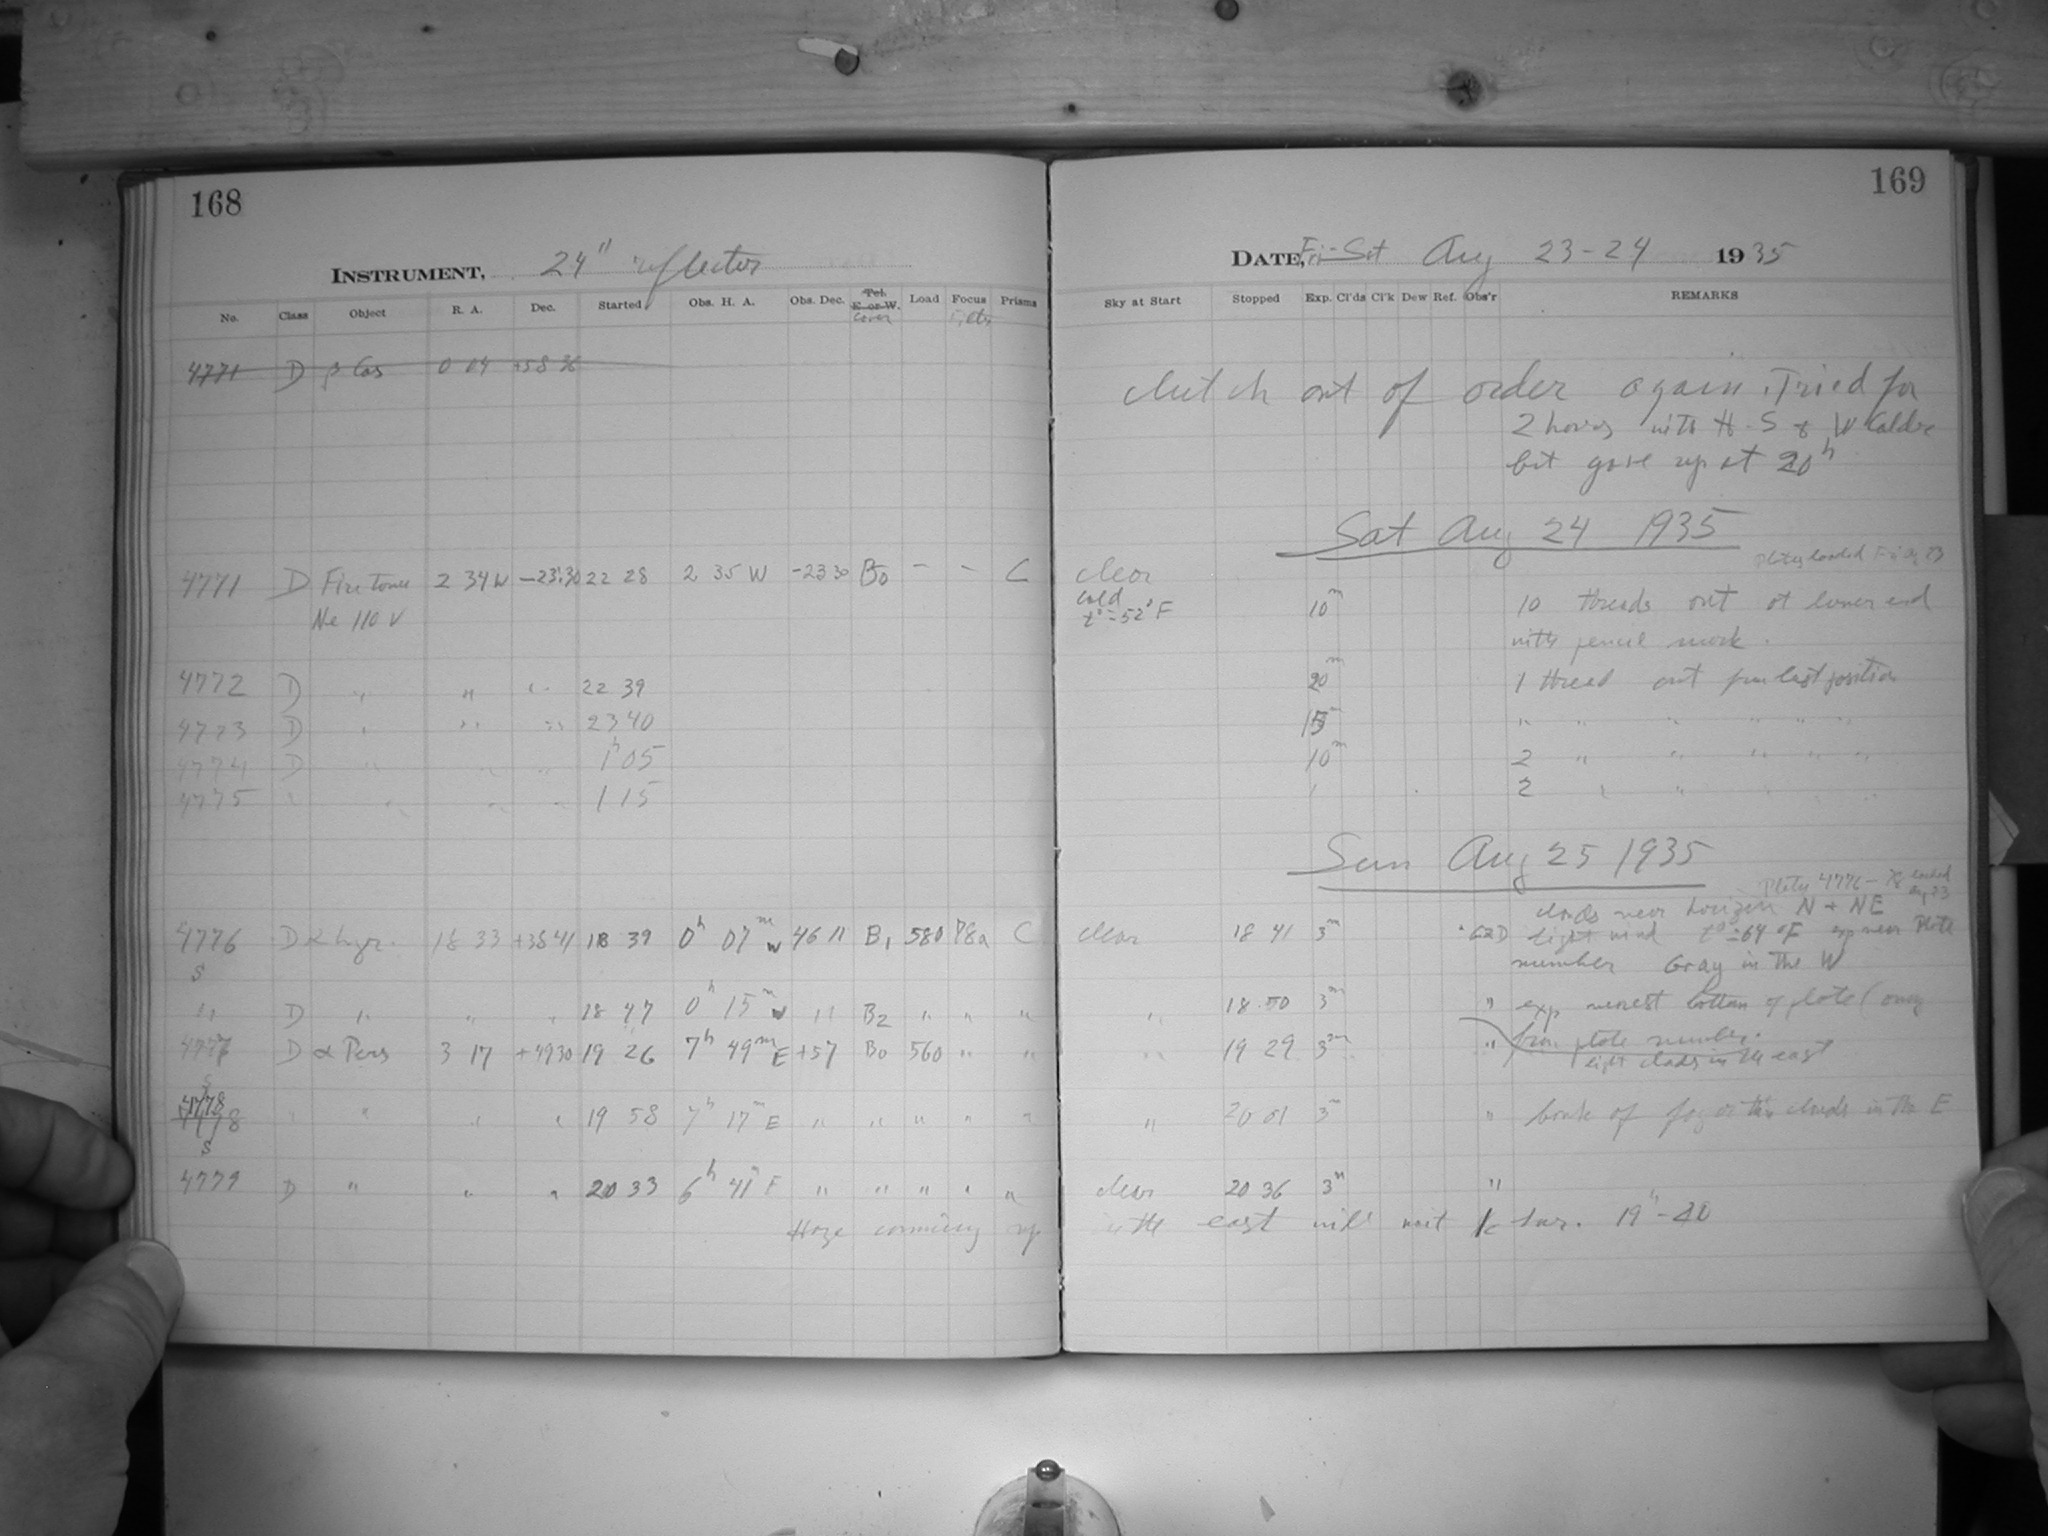 168
INSTRUMENT, 24" reflector
No. Class Object R. A. Dec. Started Obs. H. A. Obs. Dec. Tel. E. or W. Cover Load Focus Prisms
4771 D β Cas 0 04 +58 36
4771 D Fire Tower 2 34 W -23:30 22 28 2 35 W -23 30 B0 - - C
Ne 110 V
4772 D " " " 22 39
4773 D " " " 23 40
4774 D " " " 1h 05
4775 " " " " 1 15
4776 D α Lyr 18 33 +38 41 18 39 0h 07m W 46 11 B1 580 78a C
S
" D " " " 18 47 0h 15m W " B2 " " "
4777 D α Pers 3 17 +49 30 19 26 7h 49m E +57 B0 560 " "
S
4778
4778 " " " " 19 58 7h 17m E " " " " "
S
4779 D " " " 20 33 6h 41m E " " " " "
Haze comming up
169
DATE, Fri-Sat Aug 23-24 1935
Sky at Start Stopped Exp. Cl'ds Cl'k Dew Ref. Obs'r REMARKS
clutch out of order again. Tried for
2 hours with H-S & W Calder
but gave up at 20h
Sat Aug 24 1935
Plates loaded Fri Aug 23
clear
cold
t° = 52° F 10m 10 threads out at lower end
with pencil mark.
20m 1 thread out from last position
15m " " " " " "
10m 2 " " " " "
2 " " " " "
Sun Aug 25 1935
Plates 4776-78 loaded Aug 23
clouds near horizon N + NE
clear 18 41 3m light wind t° = 64 °F exp near Plate
number Gray in the W
" 18 50 3m " exp nearest bottom of plate (away
from plate number.
" 19 29 3m " light clouds in the east
" 20 01 3m " bank of fog or thin clouds in the E
clear 20 36 3m "
in the east will wait 19h-40